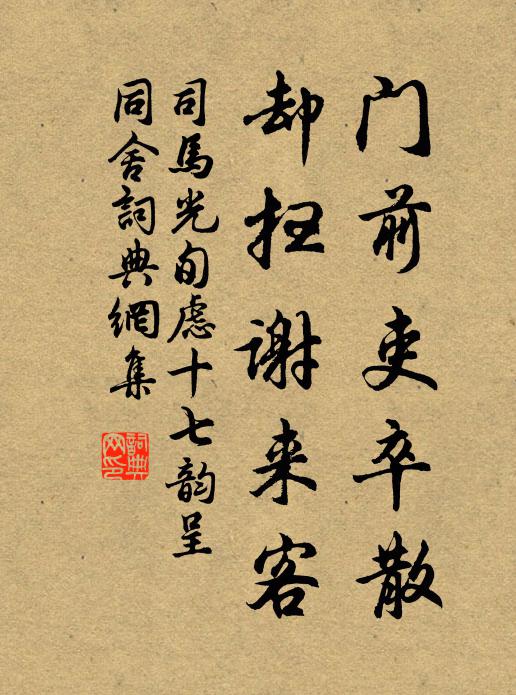 门前吏卒散
却扫谢来客
司馬光旬虑十七韵呈
同舍詞典網集
詞典網印